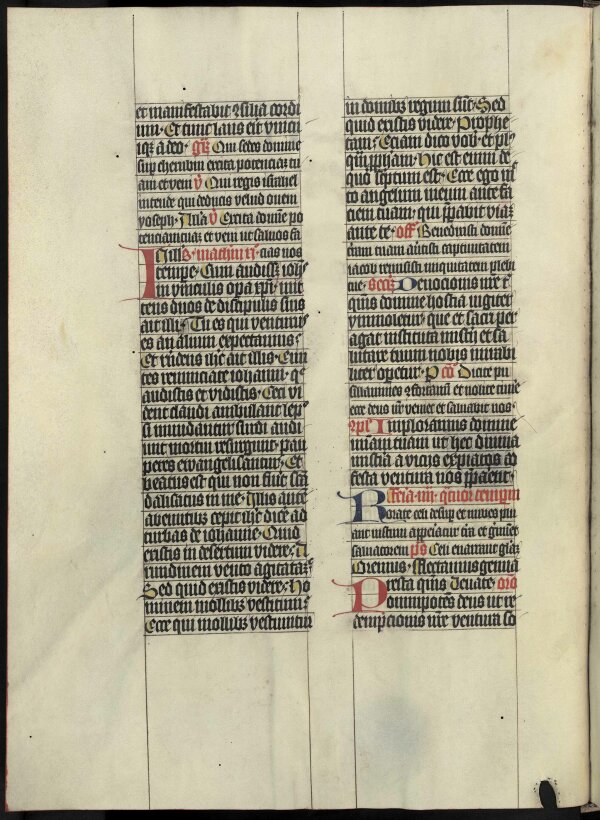 et manifestabit ɔsilia cordi
um· Et tunc laus erit unicu
iqꝫ a deo· gͬ Qui sedes domine
suꝑ cherubin excita potenciaꝫ tu
am et veni ꝟ Qui regis israhel
intende qui deducis velud ouem
yoseph· Alla ꝟ Excita domīe po
tenciam tuaꝫ et veni ut saluos fa
matheū
tempe· Cum audissꝫ ioh
in vinculis opa xp̄i· mit
tens duos de discipulis suis
ait illi· Tu es qui ventur᷒
es an alium expectamus·
Et rn̄dens ih̄c ait illis· Eun
tes renunciate iohanni· q̄
audistis et vidistis· Ceci vi
dent claudi ambulant lep
si mundantur surdi audi
unt mortui resurgunt· pau
peres ewangelisantur· Et
beatus est qui non fuerit scā
dalisatus in me· Illis autē
abeuntibꝫ cepit ih̄c dice᷑ ad
turbas de iohanne· Quid
existis in desertum videre· A
rundinem vento agitataꝫ·
Sed quid existis videre· Ho
minem mollibꝫ vestitum·
Ecce qui mollibꝫ vestiuntur
in domibꝫ regum sūt· Sed
quid existis videre· Prophe
tam· Eciam dico vob· et pl᷒
qꝫ ꝓph̄am· Hic est enim de
quo sc̄ptum est· Ecce ego mit
to angelum meum ante fa
ciem tuam· qui p̄parabit viaꝫ
ante te· off Benedixisti domīe
terram tuam auertisti captiuitatem
iacob remisisti iniquitatem plebis
tue· secͬ Deuocionis nr̄e t
qs̄ domine hostia iugiter
ymmoletur· que et sacri per
agat instituta mistij et sa
lutare tuum nobis mirabi
liter oꝑetur· 9̄ Dicite pu
sillanimes ɔfortamī et nolite time᷑
ecce deus nr̄ veniet et saluabit nos·
Imploramus domine
clemenciam tuam ut hec diuina
subsidia a vicijs expiatos ad
festa ventura nos p̄parent·
feria iiij· q̄tuor temporum
Rorate celi desuꝑ et nubes plu
ant iustum apperiatur terra et ḡminet
saluatorem p̄s Celi enarrant gl̄iaꝫ
Oremus· Flectamus genua
Presta qs̄ Leuate· or̄o
omnipotēs deus ut re
dempcionis nr̄e ventura so